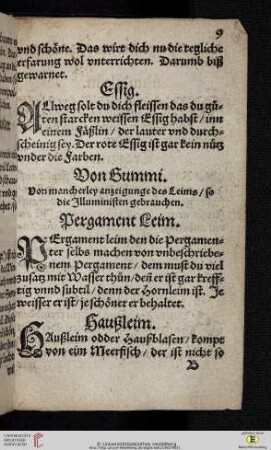 9
vnd schöne. Das wirt dich nu die tegliche
erfarung wol vnterrichten. Darumb biß
gewarnet.
Essig.
ALlweg solt du dich fleissen das du gü-
ten starcken weissen Essig habst / inn
einem Fäßlin / der lauter vnd durch-
scheinig sey. Der rote Essig ist gar kein nütz
vnder die Farben.
Von Gummi.
Von mancherley anzeigunge des Leims / so
die Illuministen gebrauchen.
Pergament Leim.
PErgament leim den die Pergamen-
ter selbs machen von vnbeschriebe-
nem Pergament / dem must du viel
zusatz mit Wasser thun / deñ er ist gar kreff-
tig vnnd subtil / denn der Hornleim ist. Je
weisser er ist / je schöner er behaltet.
Haußleim.
HAußleim odder Haußblasen / kompt
von eim Meerfisch / der ist nicht so
B
UNIVERSITÄTS-
BIBLIOTHEK
HEIDELBERG
© Universitätsbibliothek Heidelberg